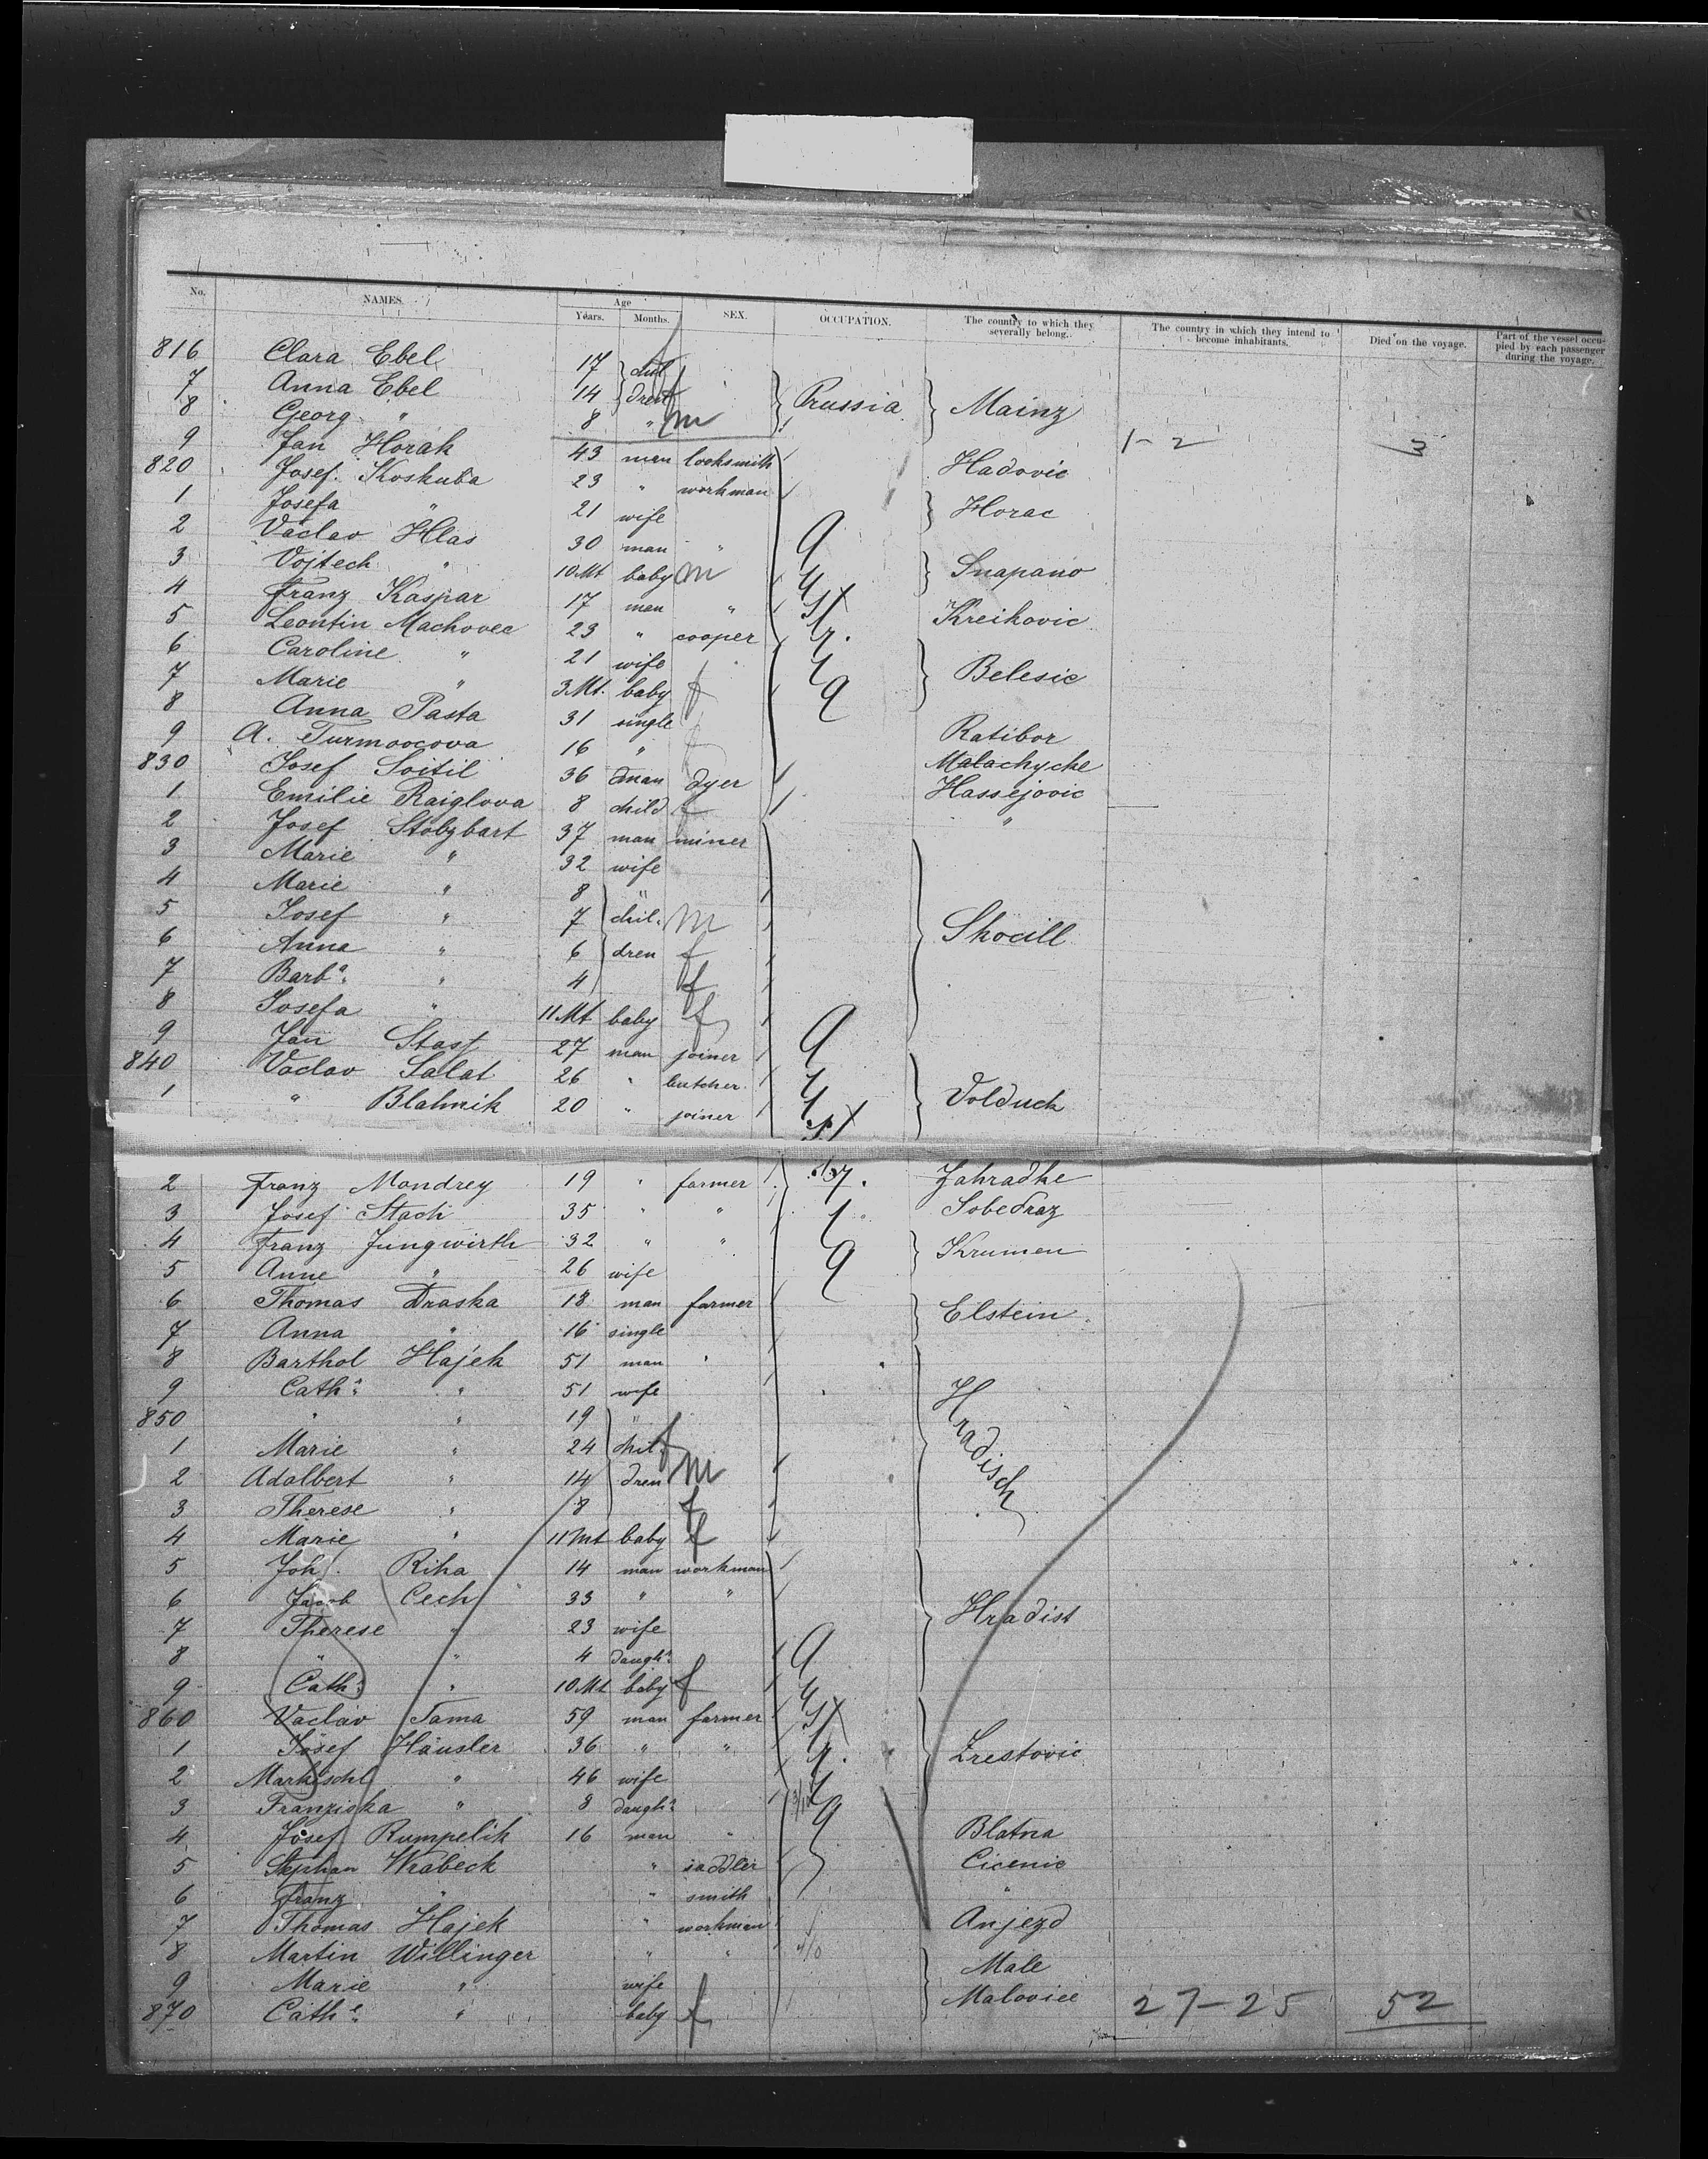 No. NAMES. Age Years. Months. SEX. OCCUPATION. The country to which they severally belong. The country in which they intend to become inhabitants. Died on the voyage. Part of the vessel occupied by each passenger during the voyage.
816 Clara Ebel 17 chil
7 Anna Ebel 14 dren f Prussia Mainz
8 Georg " 8 " m
9 Jan Horak 43 man locksmith Hadovic 1-2 3
820 Josef Koskuba 23 " workman
1 Josefa " 21 wife Horac
2 Vaclav Hlas 30 man "
3 Vojtech " 10 Mt baby m Snapano
4 Franz Kaspar 17 man " Kreihovic
5 Leontin Machovec 23 " cooper
6 Caroline " 21 wife Belesic
7 Marie " 3 Mt. baby f
8 Anna Pasta 31 single f Ratibor
9 A. Turmoocova 16 " f Malachyche
830 Josef Soitil 36 man dyer Hassejovic
1 Emilie Raiglova 8 child f "
2 Josef Stobybart 37 man miner
3 Marie " 32 wife
4 Marie " 8 "
5 Josef " 7 chil. m Skocill
6 Anna " 6 dren f
7 Barbª. " 4 f
8 Josefa " 11 Mt baby f
9 Jan Stast 27 man joiner
840 Vaclav Salat 26 " butcher
1 " Blahnik 20 " joiner Volduck
2 Franz Mondrey 19 " farmer Zahradke
3 Josef Stach 35 " " Sobedraz
4 Franz Jungwirth 32 " " Krumen
5 Anne " 26 wife
6 Thomas Draska 18 man farmer Elstein
7 Anna " 16 single
8 Barthol Hajek 51 man "
9 Cathª. " 51 wife
850 " " 19 " Hradisch
1 Marie " 24 chil f
2 Adalbert " 14 dren m
3 Therese " 8 f
4 Marie " 11 Mt baby f
5 Joh. Riha 14 man workman
6 Jacob Cech 33 " " Hradist
7 Therese " 23 wife
8 " " 4 daughr.
9 Cath. " 10 Mt baby f
860 Vaclav Tama 59 man farmer
1 Josef Häusler 36 " " Zrestovic
2 " 46 wife
3 Franziska " 8 daughr.
4 Josef Rumpelik 16 man " Blatna
5 Stephan Wrabeck " saddler Cicenic
6 Franz " " smith "
7 Thomas Hajek " workman Anjezd
8 Martin Willinger " " Male
9 Marie " wife Malovice 27-25 52
870 Cathe. " baby f